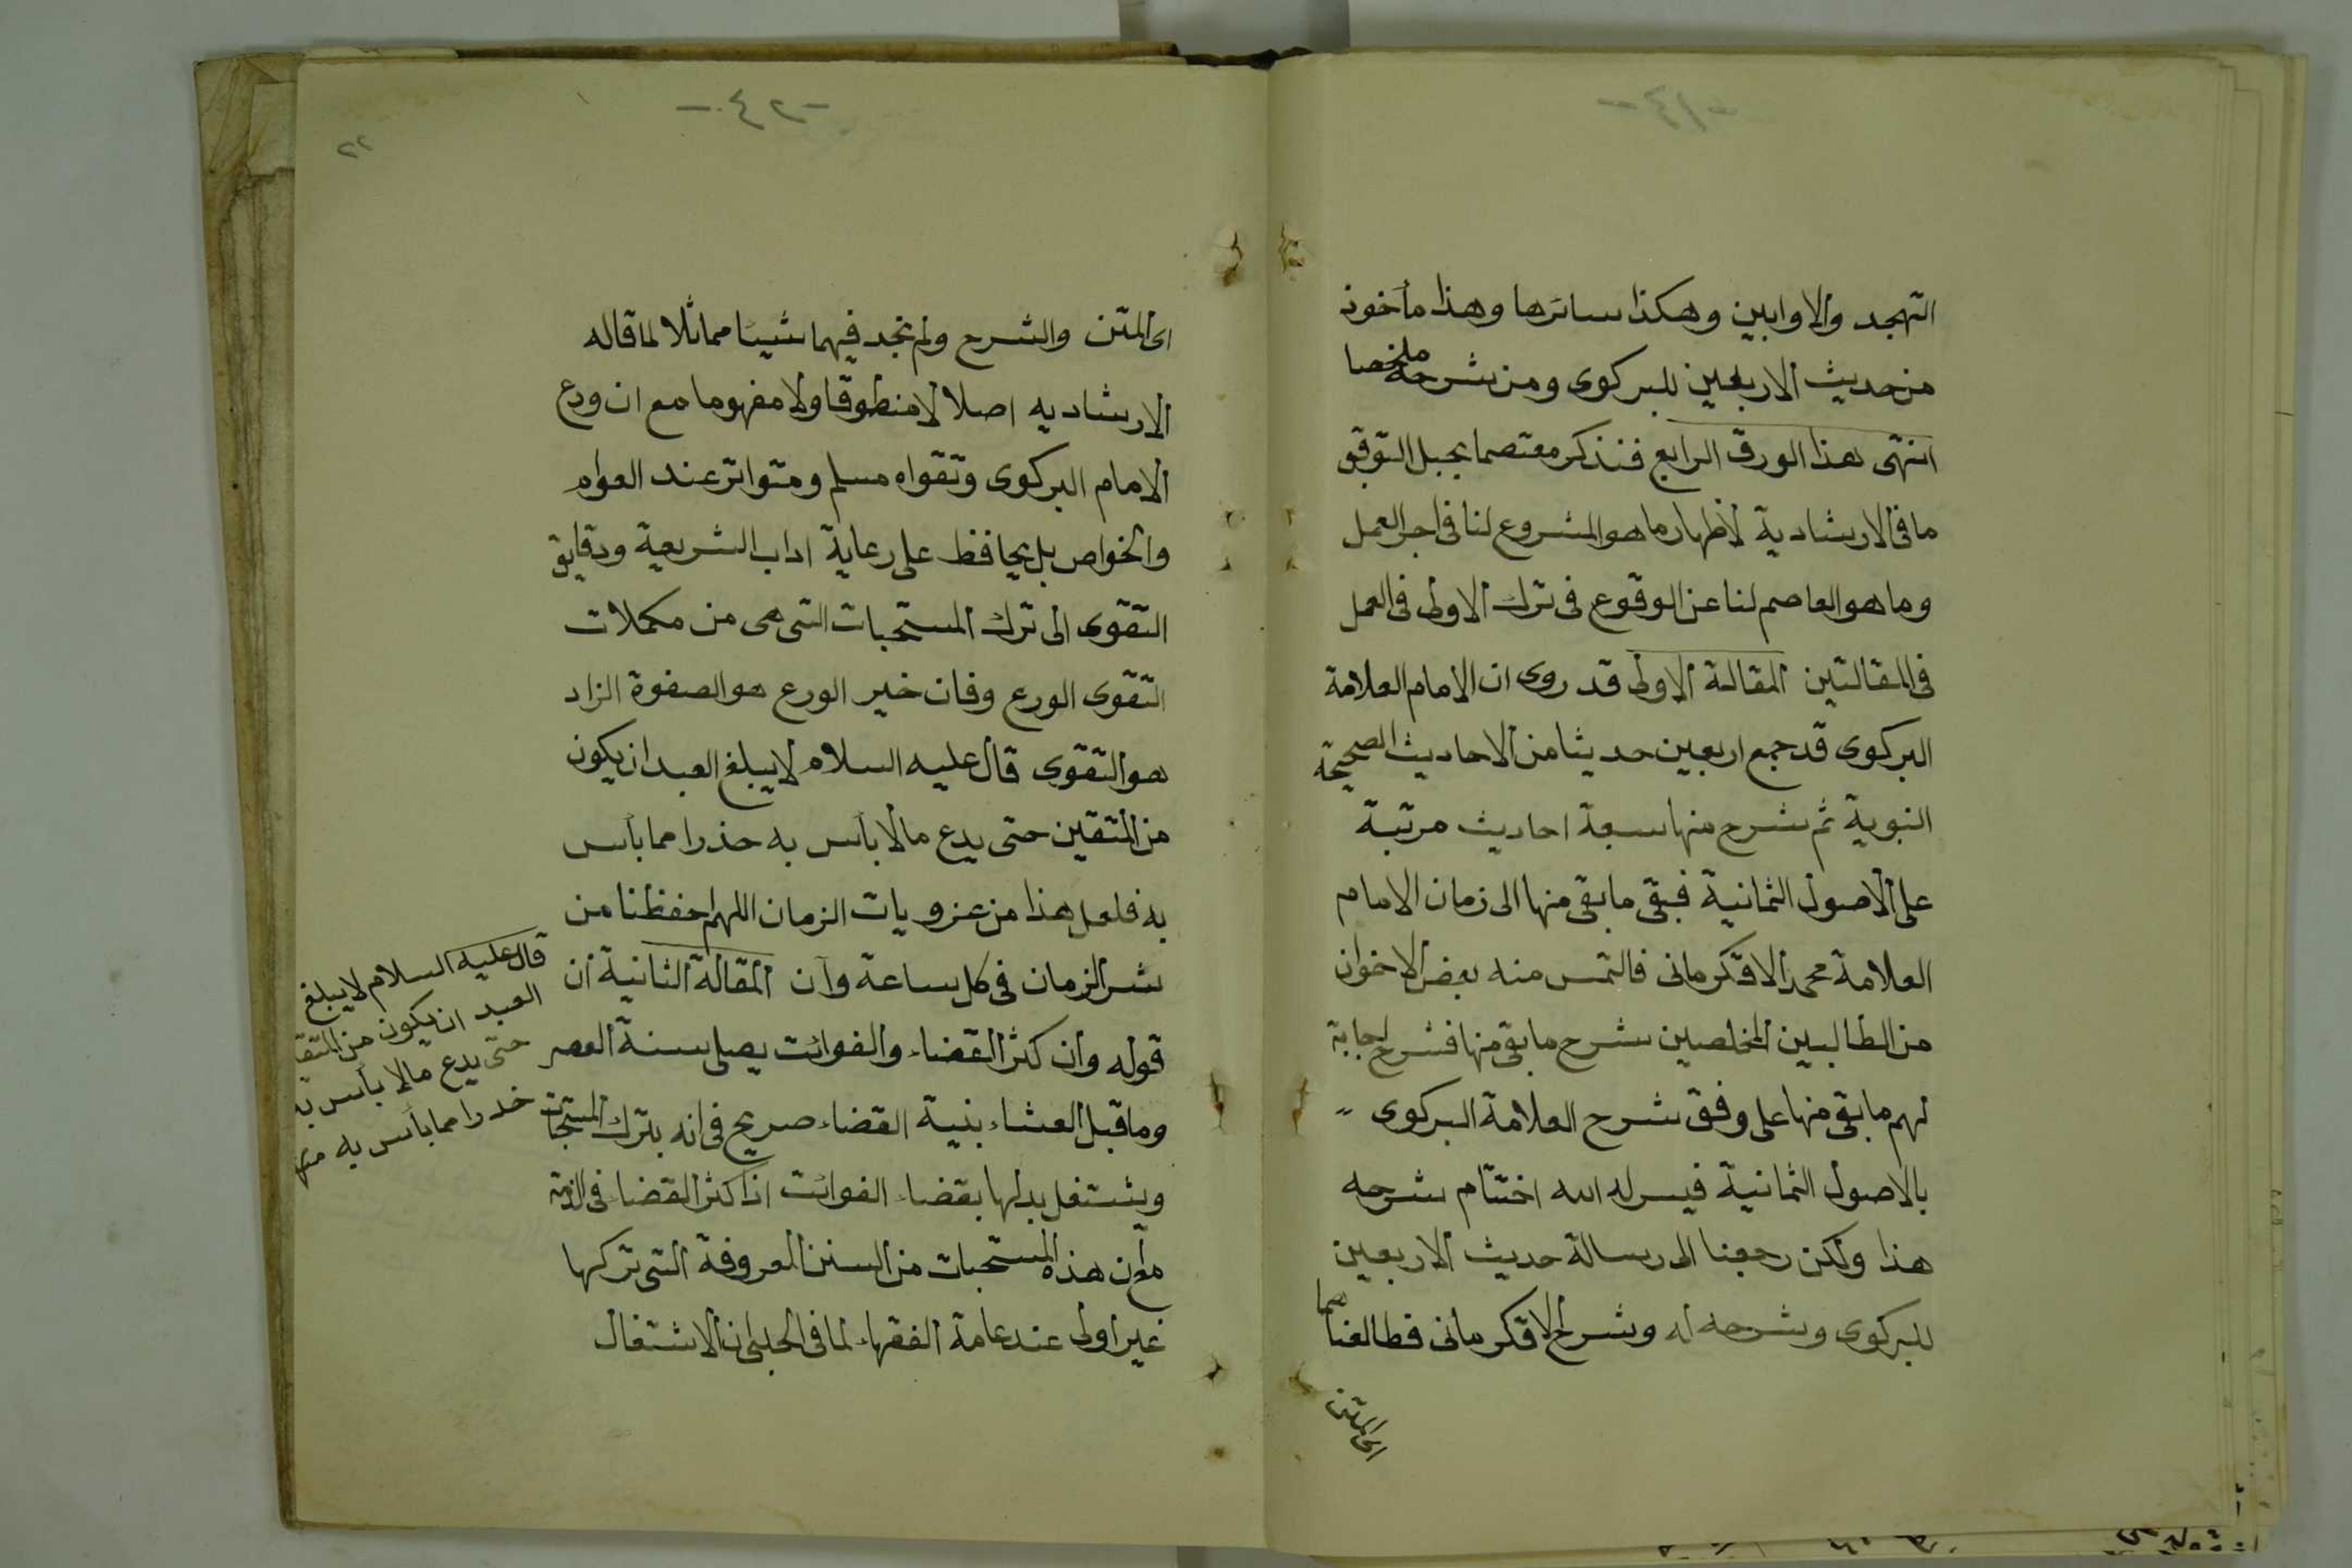 التهجد والاوابين وهكذا سائرها وهذا مأخوذ
من حديث الاربعين للبركوى ومن شرحه ملخصا
انتهى هذا الورق الرابع فنذكر معتصما بحبل التوفيق
ما فى الارشادية لأظهار ما هو المشروع لنا فى اجر العمل
وما هو العاصم لنا عن الوقوع فى ترك الاولى فى العمل
فى المقالتين المقالة الاولى قد روى ان الامام العلامة
البركوى قد جمع اربعين حديثا من الاحاديث الصحيحة
النبوية ثم شرح منها سبعة احاديث مرتبة
على الاصول الثمانية فبقى ما بقى منها الى زمان الامام
العلامة محمد الاقكرمانى فالتمس منه بعض الاخوان
من الطالبين المخلصين شرح ما بقى منها فشرح اجابة
لهم ما بقى منها على وفق شرح العلامة البركوى
بالاصول الثمانية فيسر له الله اختتام شرحه
هذا ولكن رجعنا الى رسالة حديث الاربعين
للبركوى وشرحه له وشرح الاقكرمانى فطالعناهما
اى المتن
٢٤
٢٢
اى المتن والشرح ولم نجد فيهما شيئا مماثلا لما قاله
الارشاديه اصلا لا منطوقا ولا مفهوما مع ان ورع
الامام البركوى وتقواه مسلم ومتواتر عند العوام
والخواص بل يحافظ على رعاية اداب الشريعة ودقايق
التقوى الى ترك المستحبات التى هى من مكملات
التقوى الورع وفان خير الورع هو الصفوة الزاد
هو التقوى قال عليه السلام لا يبلغ العبد ان يكون
من المتقين حتى يدع ما لا بأس به حذرا مما بأس
به فلعل هذا من عزويات الزمان اللهم احفظنا من
شر الزمان فى كل ساعة وآن المقالة الثانية ان
قوله وان كثر القضاء والفوائت يصلى سنة العصر
وما قبل العشاء بنية القضاء صريح فى انه بترك المستحبات
ويشتغل بدلها بقضاء الفوائت اذا كثر القضاء فى الذمة
مع ان هذه المستحبات من السنن المعروفة التى تركها
غير اولى عند عامة الفقهاء لما فى الحلبى ان الاشتغال
قال عليه السلام لا يبلغ
العبد ان يكون من المتقين
حتى يدع ما لا بأس به
حذرا مما بأس به